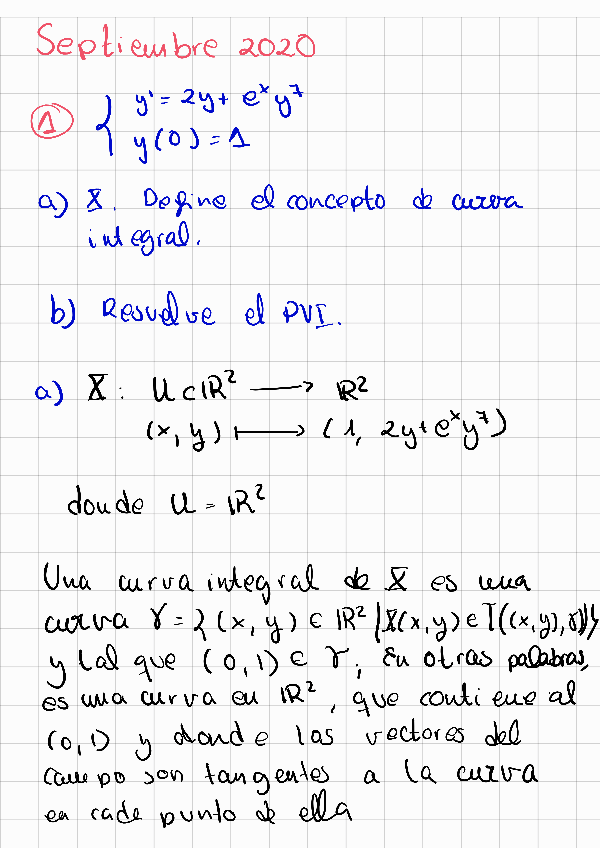 Septiembre 2020
① { y' = 2y + e^x y^7
y(0) = 1
a) X. Define el concepto de curva
integral.
b) Resuelve el PVI.
a) X : U ⊂ ℝ² ⟶ ℝ²
(x, y) ⟼ (1, 2y + e^x y^7)
donde U = ℝ²
Una curva integral de X es una
curva γ = {(x, y) ∈ ℝ² | X(x,y) ∈ T((x,y), γ)}
y tal que (0,1) ∈ γ; En otras palabras,
es una curva en ℝ², que contiene al
(0,1) y donde los vectores del
campo son tangentes a la curva
en cada punto de ella